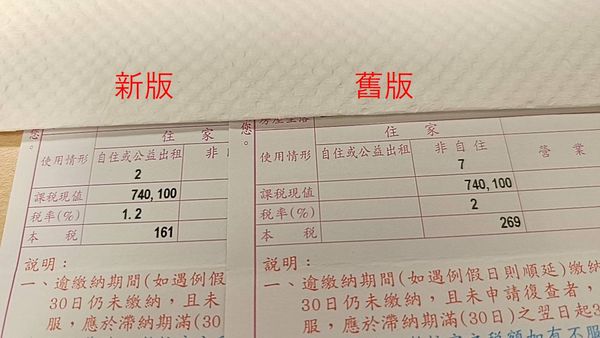 新版
舊版
您。
住 家
使用情形 自住或公益出租 非
2
課稅現值 740,100
稅率(%) 1.2
本 稅 161
說明：
一、逾繳納期間(如遇例假
30日仍未繳納，且未
服，應於滯納期滿(30
您。
住 家
使用情形 自住或公益出租 非自住 營業
7
課稅現值 740,100
稅率(%) 2
本 稅 269
說明：
一、逾繳納期間(如遇例假日則順延)繳納
30日仍未繳納，且未申請復查者，
服，應於滯納期滿(30日)之翌日起3